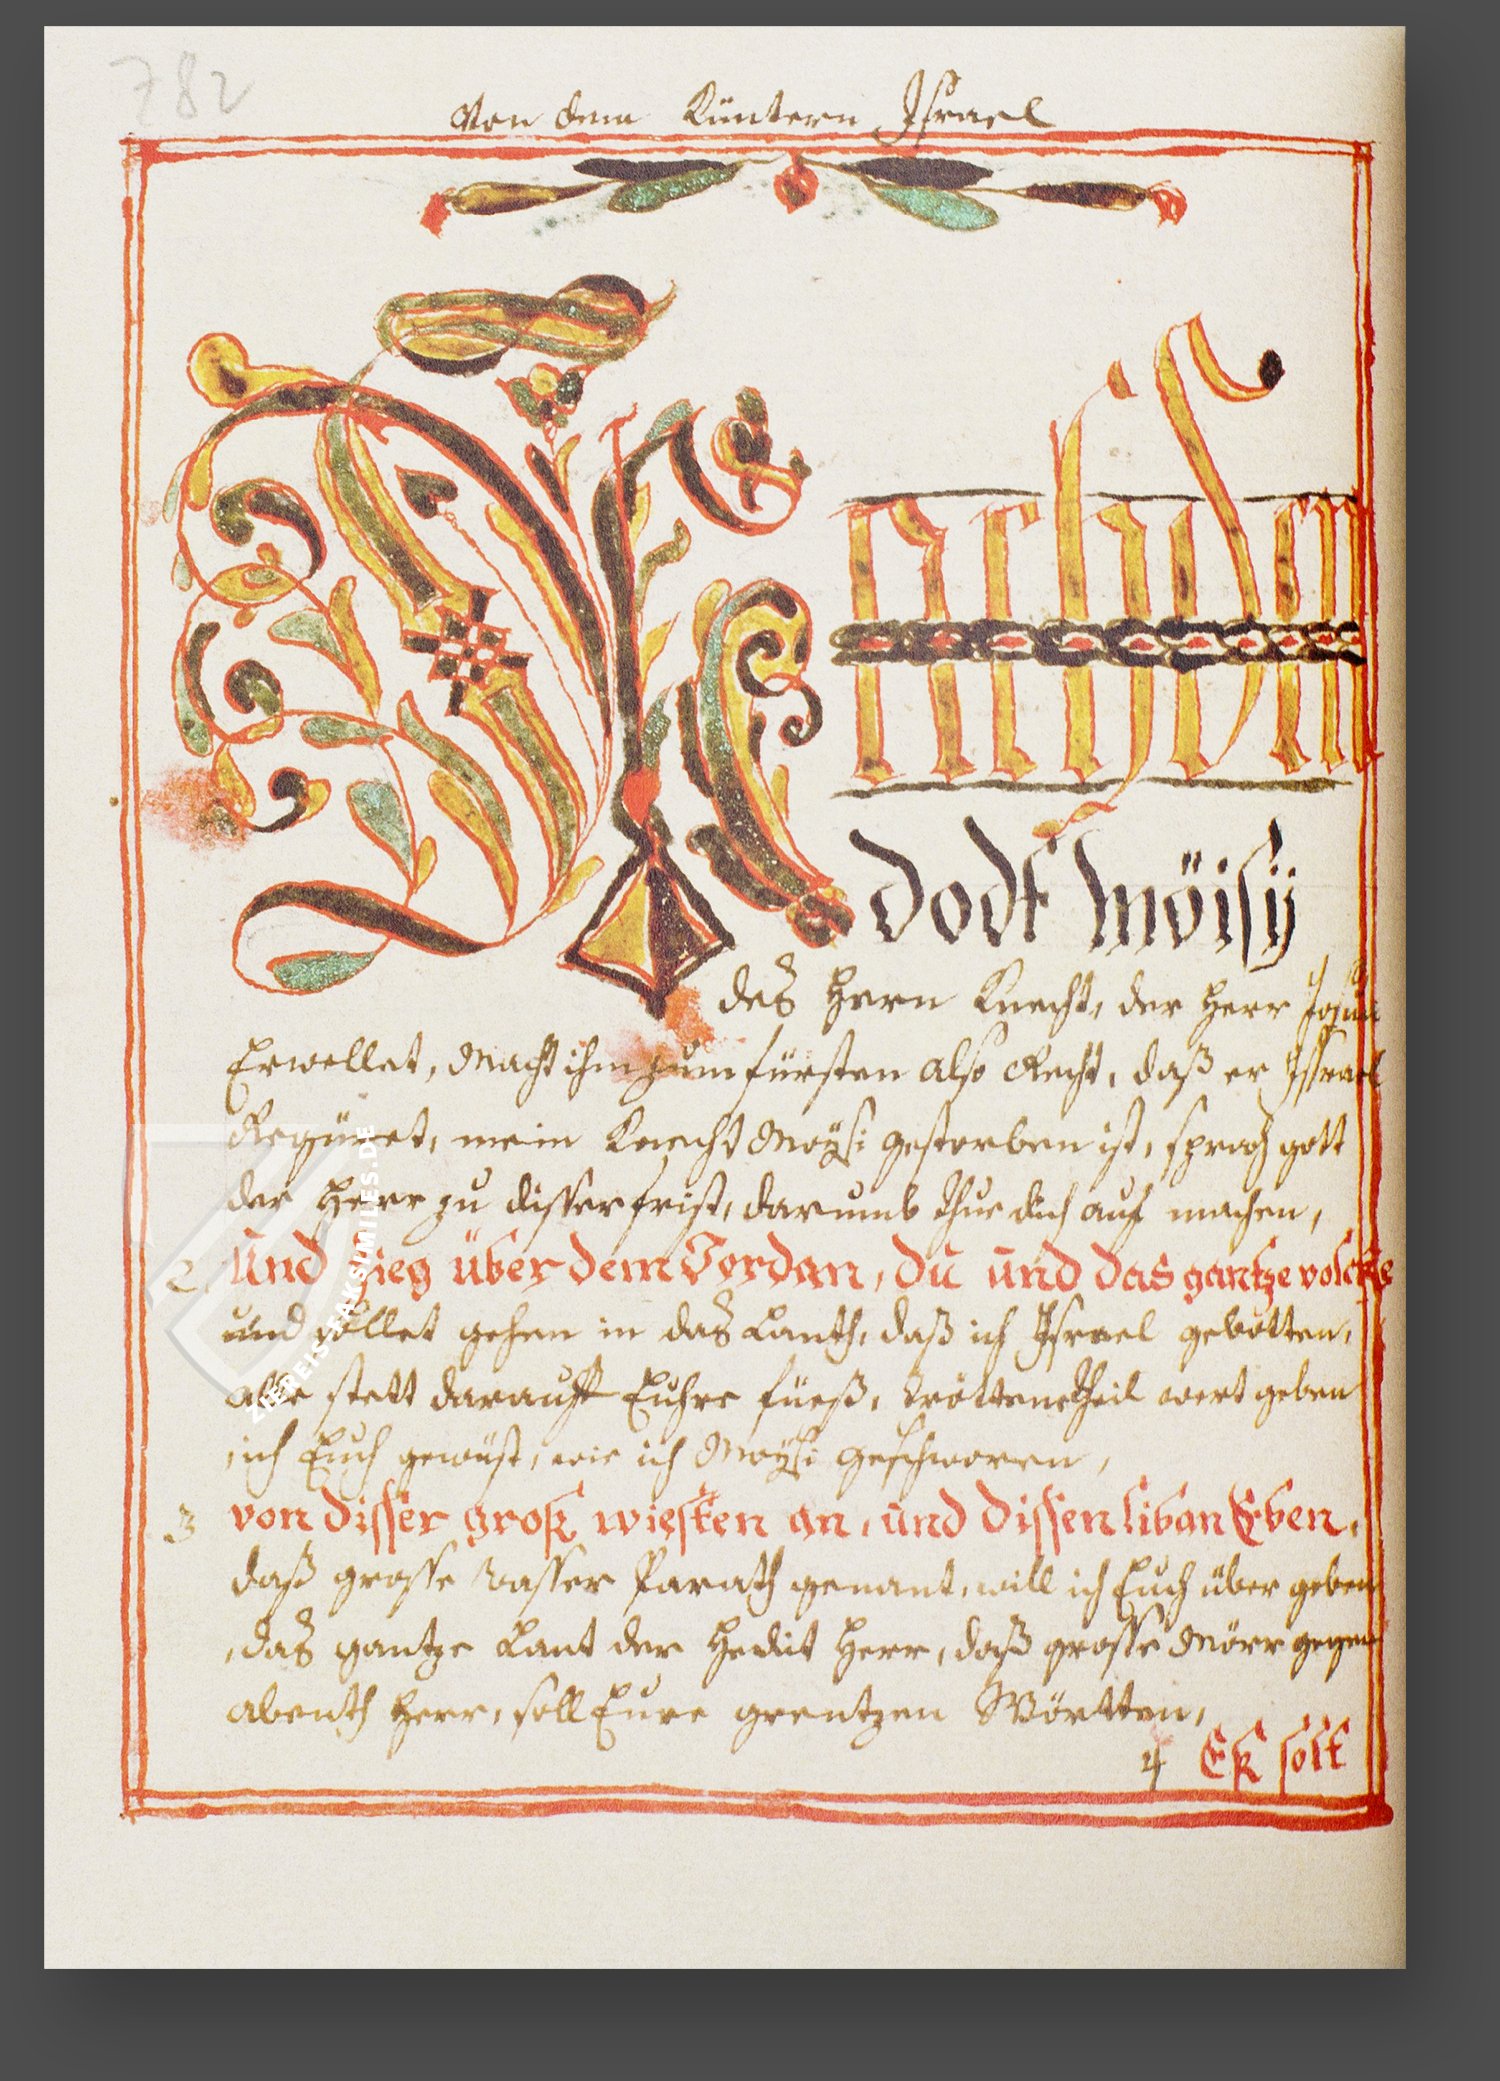 782
Von dem Küntern Israel
Nachdem
dodt Möisÿ
deß Hern Knecht, der Herr Josua
Erwellet, Macht ihm zum fürsten also Recht, daß er Issrael
Regüret, mein Knecht Moÿsi gestorben ist, sprach gott
der Herr zu disser frist, darumb thue dich auf machen,
2. Und zieg über dem Jordan, du und das gantze volcke
und sollet gehen in daß Lanth, daß ich Israel gebotten,
alle stett darauff Euhre füeß, tröttene theil wert geben
ich Euch gewüst, wie ich Moÿsi geschworen,
3 von disser groß wiesten an, und dissen liban Eben,
daß grosse wasser Parath genant, will ich Euch über geben
daß gantze Lant der Hediit Herr, daß grosse Mörr gegen
abenth Herr, soll Eure grentzen Wörtten,
4 Eß solt
ZIEREIS FAKSIMILES.DE